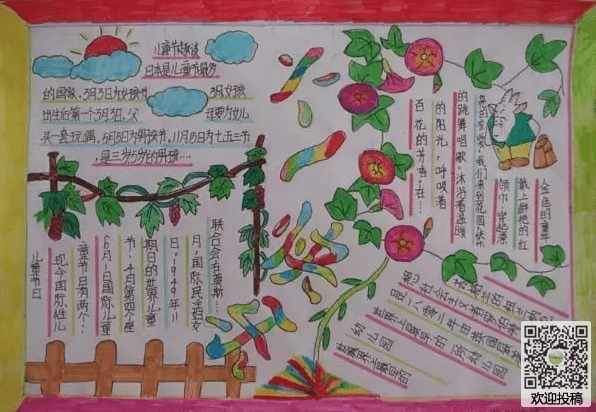 儿童节趣谈
日本是儿童节最多
的国家,3月3日为女孩节
3月女孩
出生后第一个3月3日,父
母要为女儿
买一套玩偶,5月5日为男孩节,11月15日为七五三节
是三岁5岁的男孩…
儿童节日
现今国际性儿
童节日有两个:
6月1日国际儿童
节,4月第四个星
期日的世界儿童
日,1949年11
月,国际民主妇女
联合会在莫斯…
金色的童年
戴上鲜艳的红
领巾,穿起漂
亮的衣裳,我们来到花园,快乐
的跳舞唱歌,沐浴着温暖
的阳光,呼吸着
百花的芳香,在…
世界上最早的
幼儿园
世界上最早的
欢迎投稿